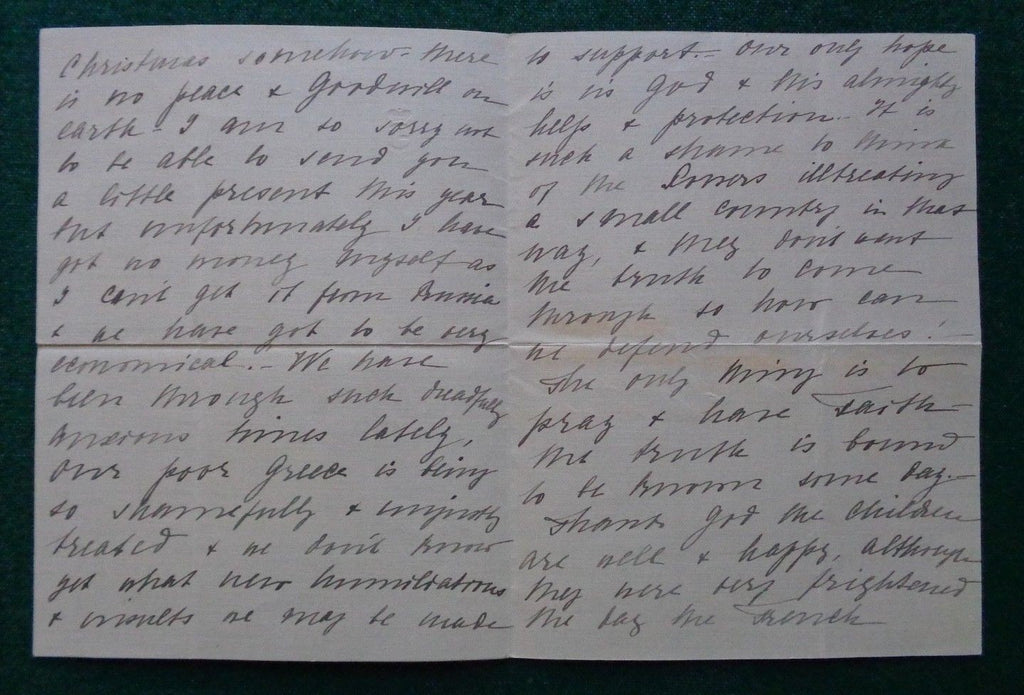 Christmas somehow - there
is no peace & Goodwill on
earth - I am so sorry not
to be able to send you
a little present this year
but unfortunately I have
got no money myself as
I can't get it from Russia
& we have got to be very
economical. - We have
been through such dreadfully
anxious times lately,
our poor Greece is being
so shamefully & unjustly
treated & we don't know
yet what new humiliations
& insults we may be made
to support. - Our only hope
is in God & His almighty
help & protection. - It is
such a shame to think
of the Powers illtreating
a small country in that
way, & they don't want
the truth to come
through so how can
we defend ourselves!
The only thing is to
pray & have Faith -
the truth is bound
to be known some day. -
Thank God the children
are well & happy, although
they were very frightened
the day the French